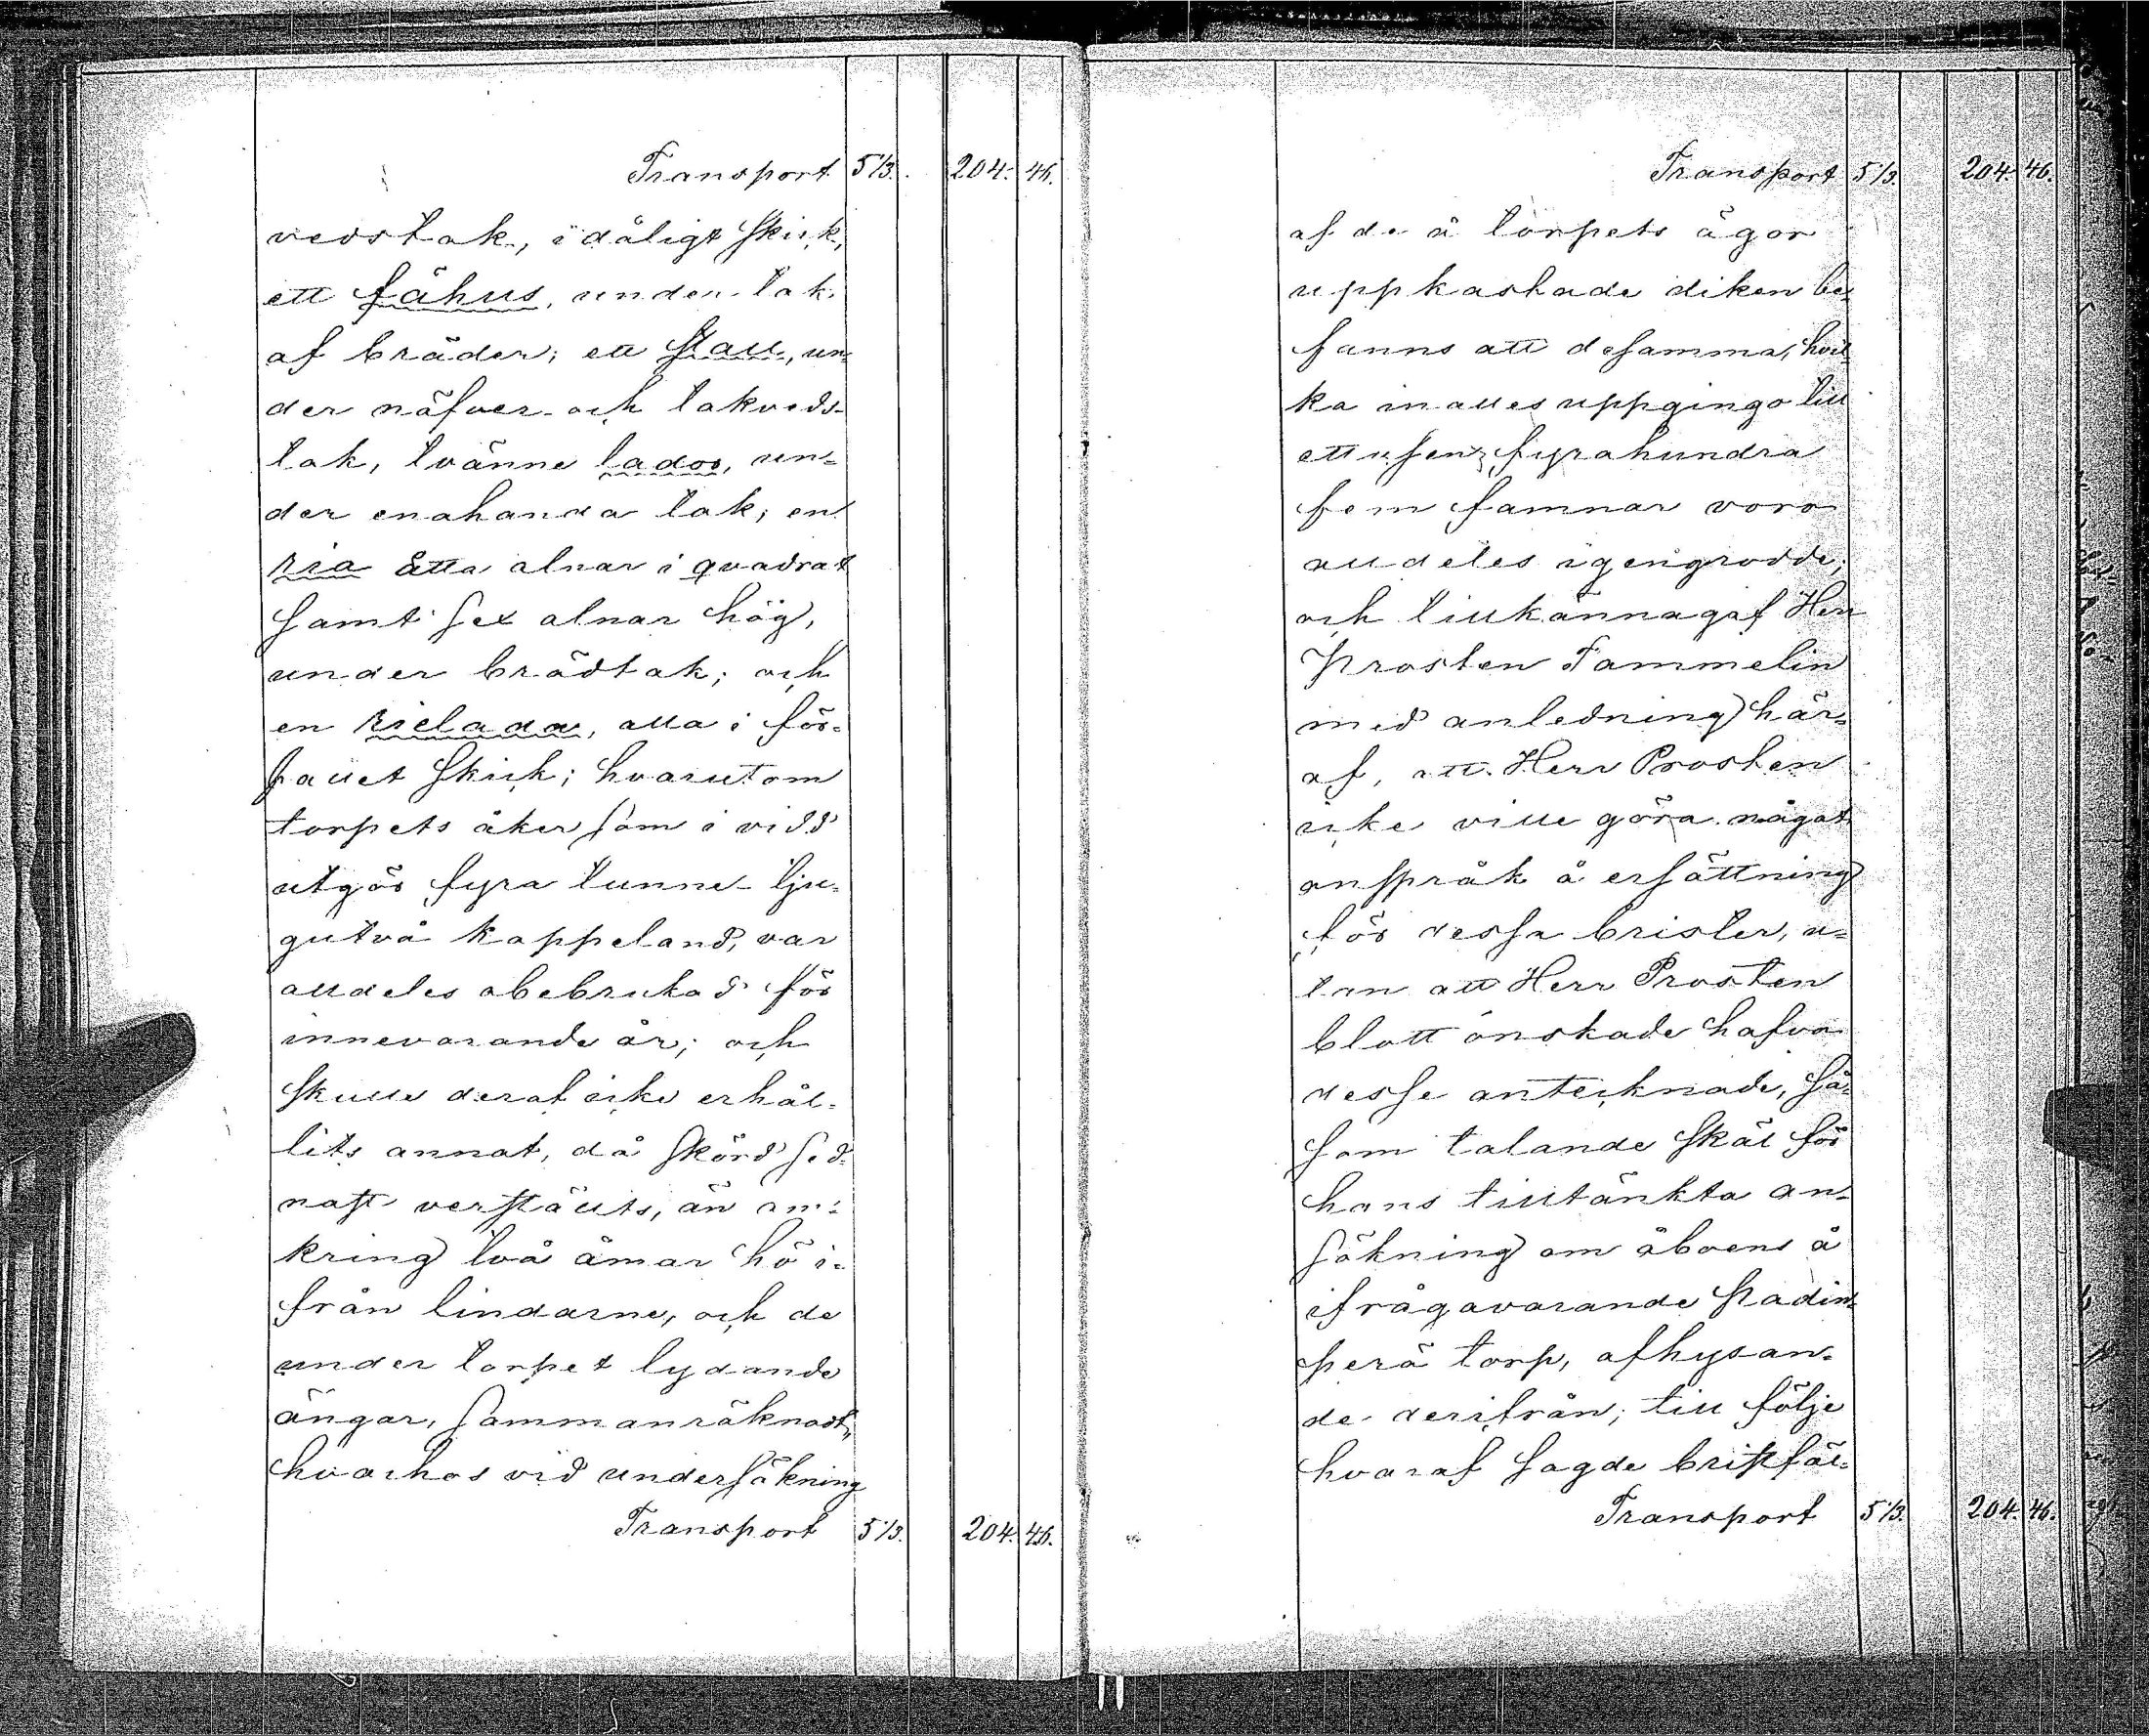 Transport 5 1/3. 204. 46.
vedstak, i dåligt skick,
ett fähus, under tak
af bräder; ett stall, un-
der näfver- och takveds-
tak, tvänne lador, un-
der enahanda tak; en
ria åtta alnar i quadrat
samt sex alnar hög,
under brädtak; och
en rielada, alla i för-
fallet skick; hvarutom
torpets åker som i vidd
utgör fyra tunne- tju-
gutvå kappeland, var
alldeles obebrukad för
innevarande år; och
skulle deraf icke erhål-
lits annat, då skörd sed-
nast verstälts, än om-
kring två åmar hö i-
från lindarne, och de
under torpet lydande
ängar, sammanräknadt,
hvarhos vid undersökning
Transport 5 1/3. 204. 46.
Transport 5 1/3. 204. 46.
af de å torpets ägor
uppkastade diken be-
fanns att desamma, hvil-
ka inalles uppgingo till
ettusen fyrahundra
fem famnar voro
alldeles igengrodde;
och tillkännagaf Herr
Prosten Tammelin
med anledning här-
af, att Herr Prosten
icke ville göra något
anspråk å ersättning
för dessa brister, u-
tan att Herr Prosten
blott önskade hafva
desse antecknade, så-
som talande skäl för
hans tilltänkta an-
sökning om åboens å
ifrågavarande Padin-
perä torp, afhysan-
de derifrån; till följe
hvaraf sagde bristfäl-
Transport 5 1/3. 204. 46.